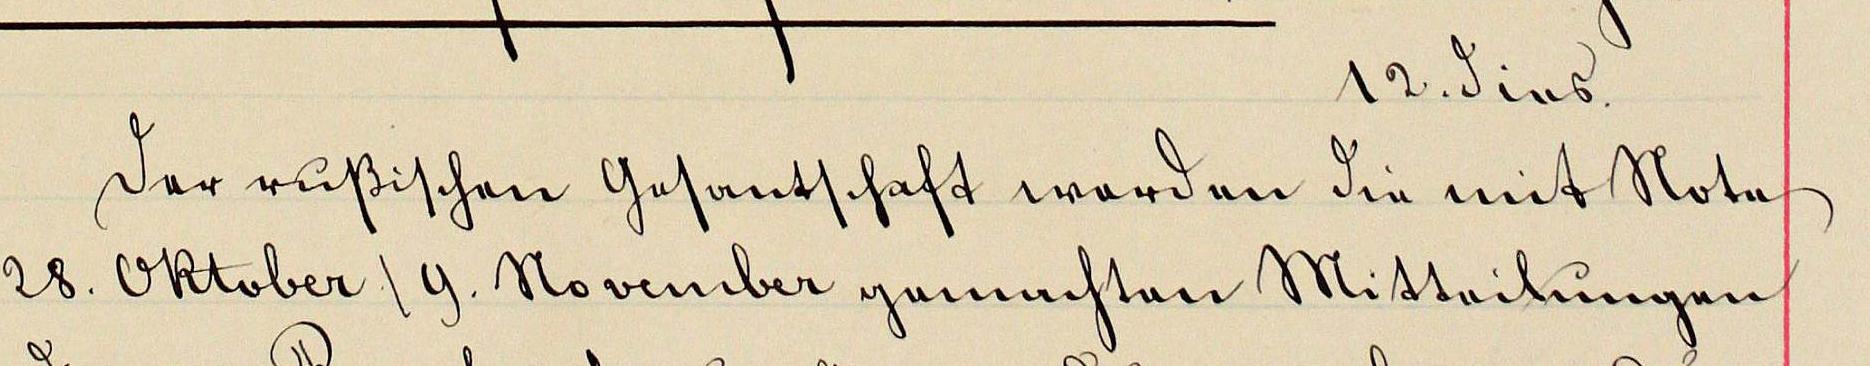 12. dies.
Der rußischen Gesantschaft werden die mit Note
28. Oktober / 9. November gemachten Mitteilungen